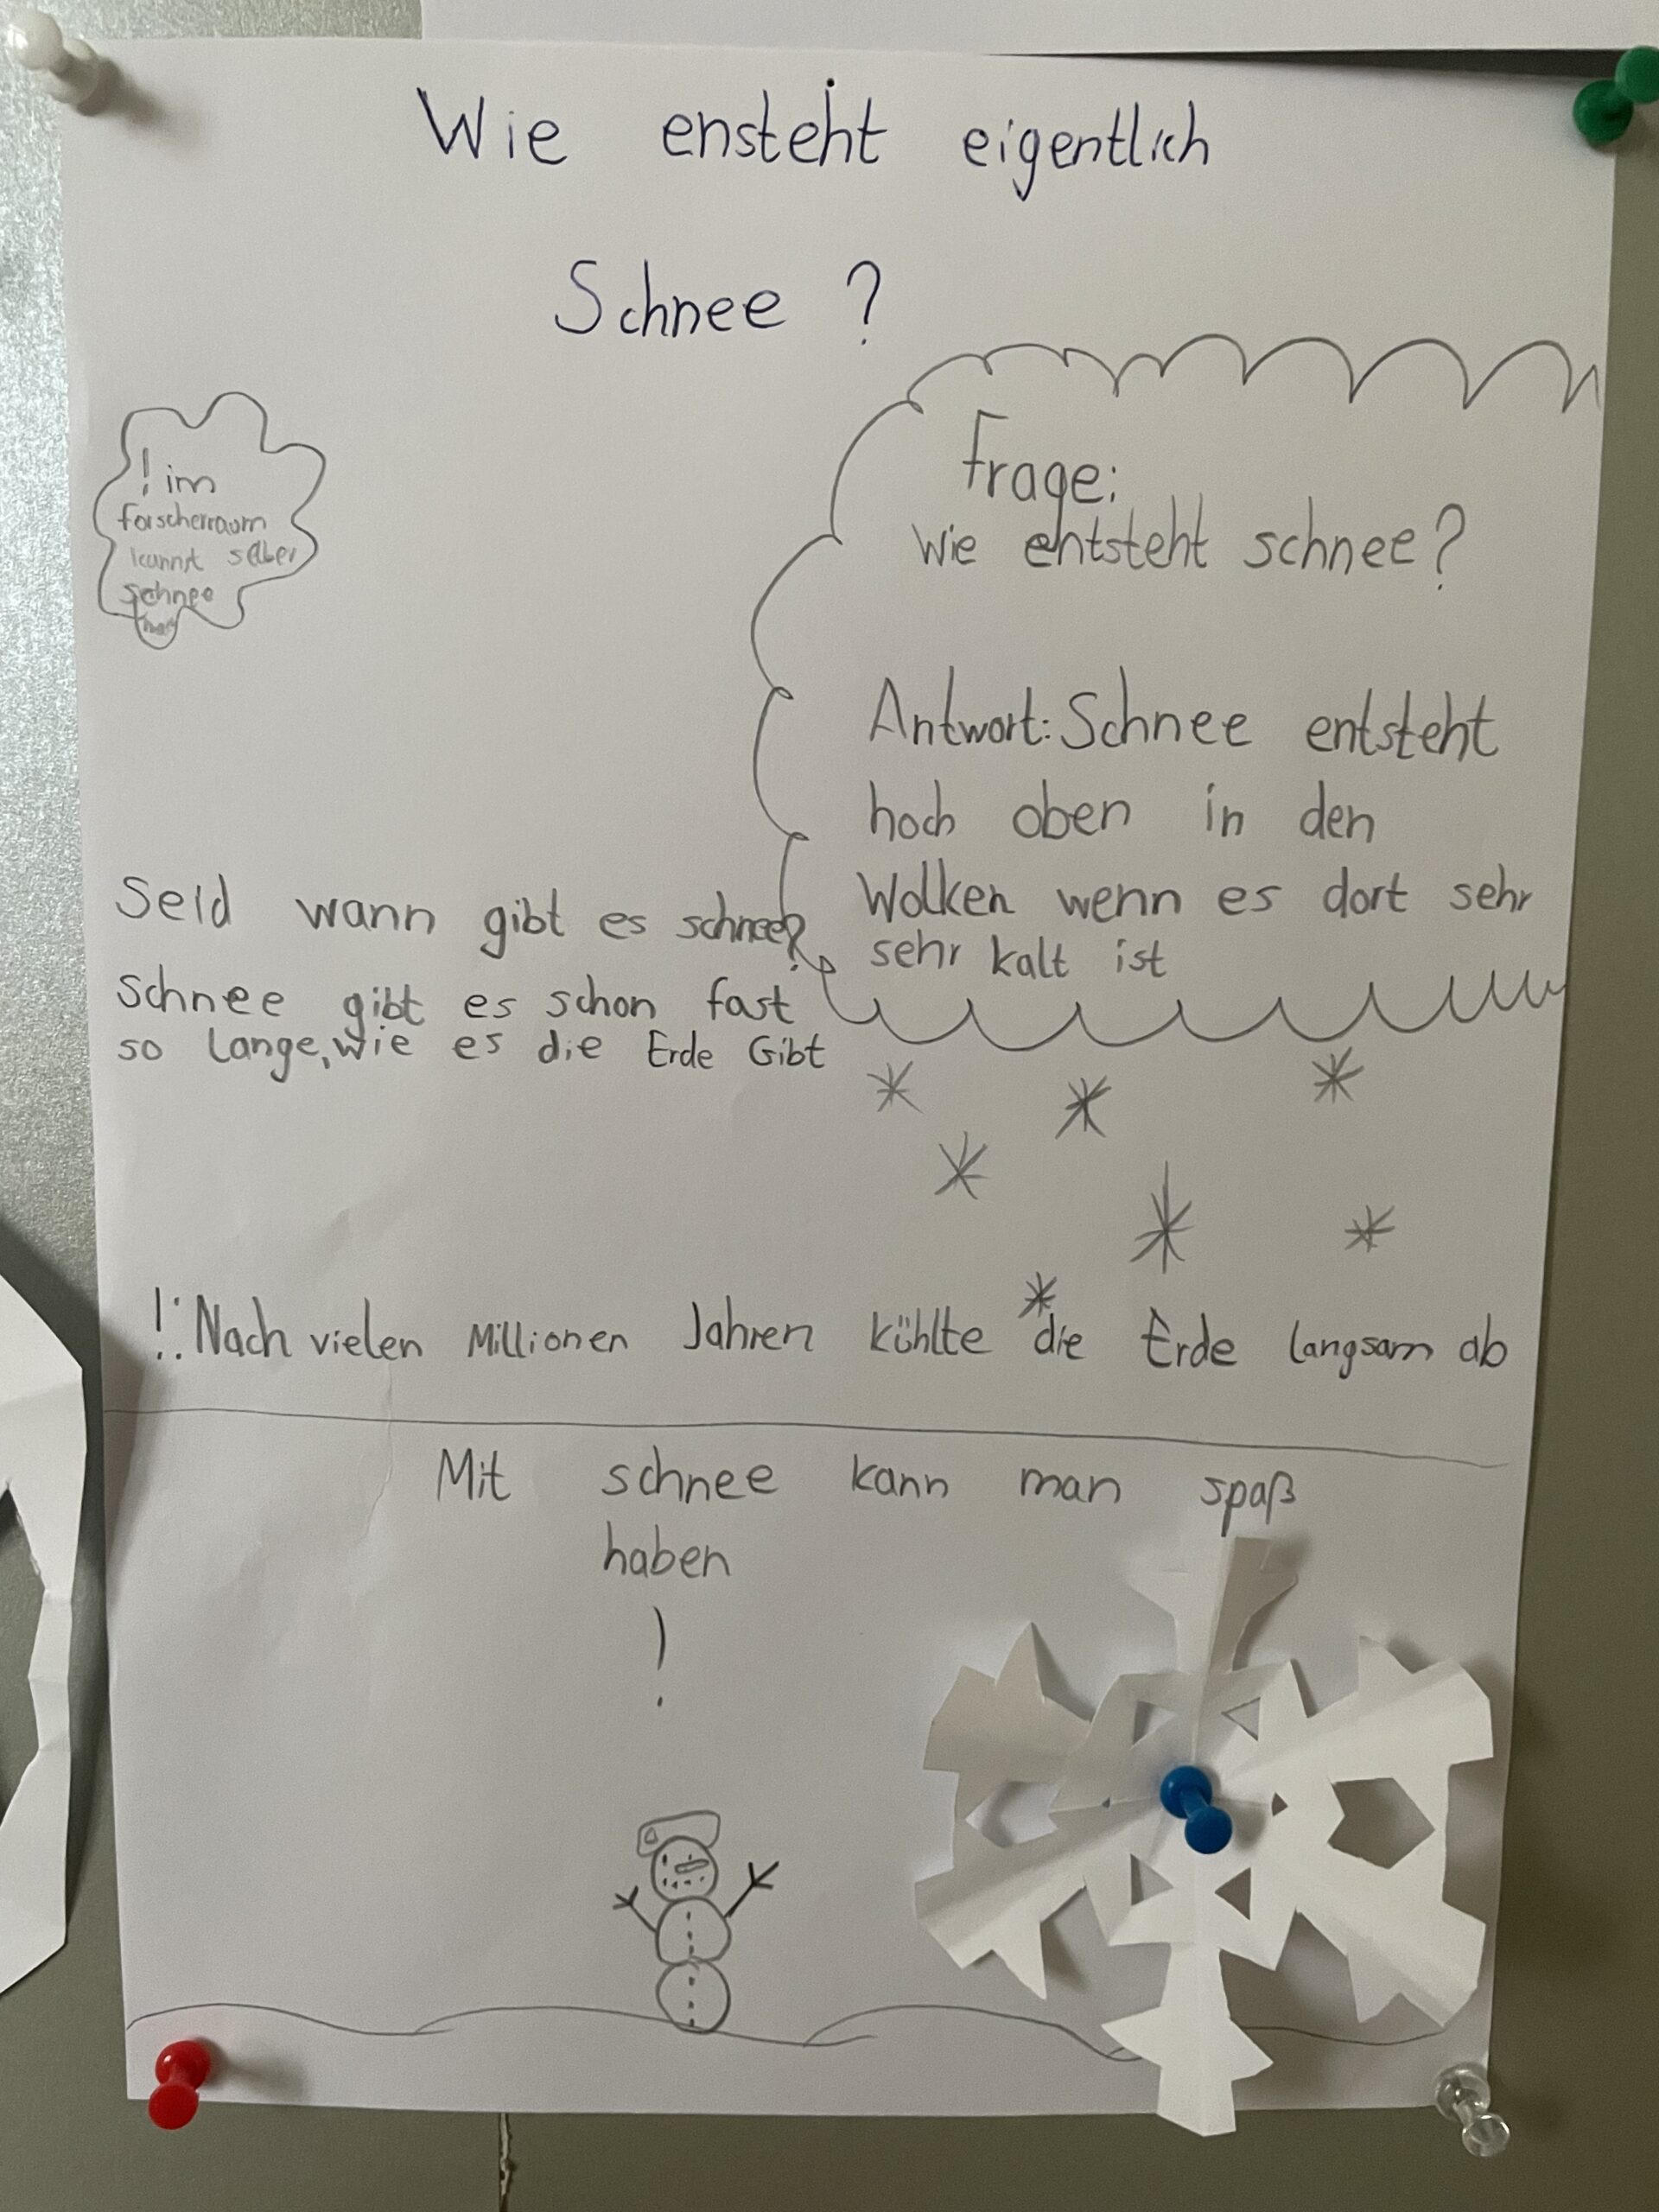 Wie ensteht eigentlich
Schnee ?
! im
forscherraum
kannst selber
schnee
Frage:
Wie entsteht schnee?
Antwort: Schnee entsteht
hoch oben in den
Wolken wenn es dort sehr
sehr kalt ist
Seid wann gibt es schnee?
schnee gibt es schon fast
so lange, wie es die Erde Gibt
!: Nach vielen Millionen Jahren kühlte die Erde langsam ab
Mit schnee kann man spaß
haben
!